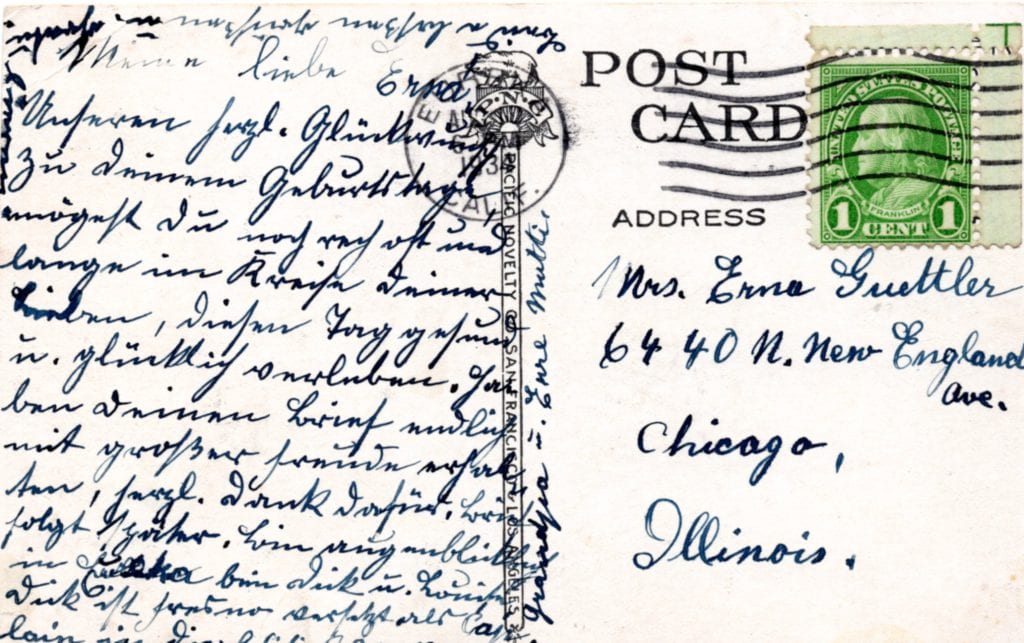 Meine liebe Erna
Unseren herzl. Glückwunsch
zu Deinem Geburtstage
mögest Du noch rech oft und
lange im Kreise Deiner
Lieben, diesen Tag gesund
u. glücklich verleben. Ha-
ben Deinen Brief endlich
mit großer Freude erhal
ten, herzl. Dank dafür. Brief
folgt später. Bin augenblicklich
in bin Dick u. Louise
Dick ist Fresno versetzt als Cap
lain in
Grandpa u. Eure Mutti
PACIFIC NOVELTY CO. SAN FRANCISCO & LOS ANGELES
P.N.C.
CALIF.
POST
CARD
ADDRESS
UNITED STATES POSTAGE
FRANKLIN
1 CENT 1
Mrs. Erna Guettler
6440 N. New England
Ave.
Chicago,
Illinois.